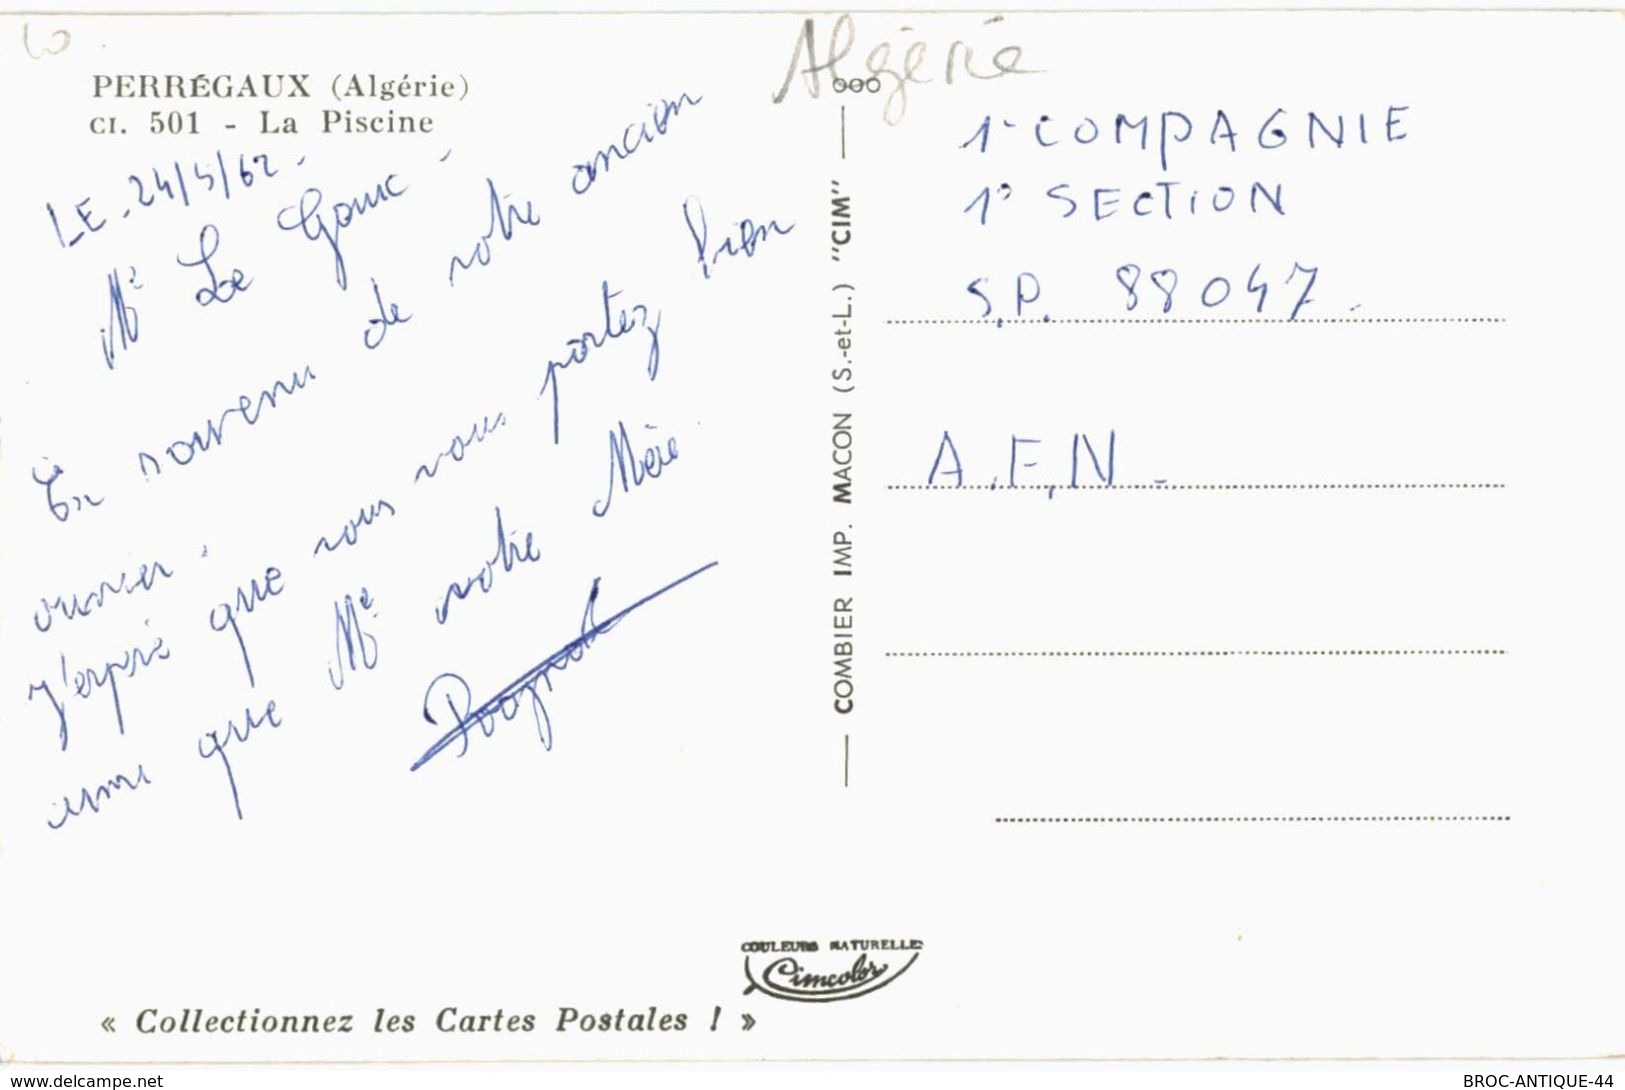 PERRÉGAUX (Algérie)
CI. 501 - La Piscine
LE. 24/5/62.
Mr Le Gouic
En souvenir de votre ancien
ouvrier.
J'espère que vous vous portez bien
ainsi que Me votre Mère
Algérie
COMBIER IMP. MACON (S.-et-L.) "CIM"
1° COMPAGNIE
1° SECTION
S.P. 88047.
A.F.N.
COULEURS NATURELLES
Cimcolor
« Collectionnez les Cartes Postales ! »
www.delcampe.net
BROC-ANTIQUE-44